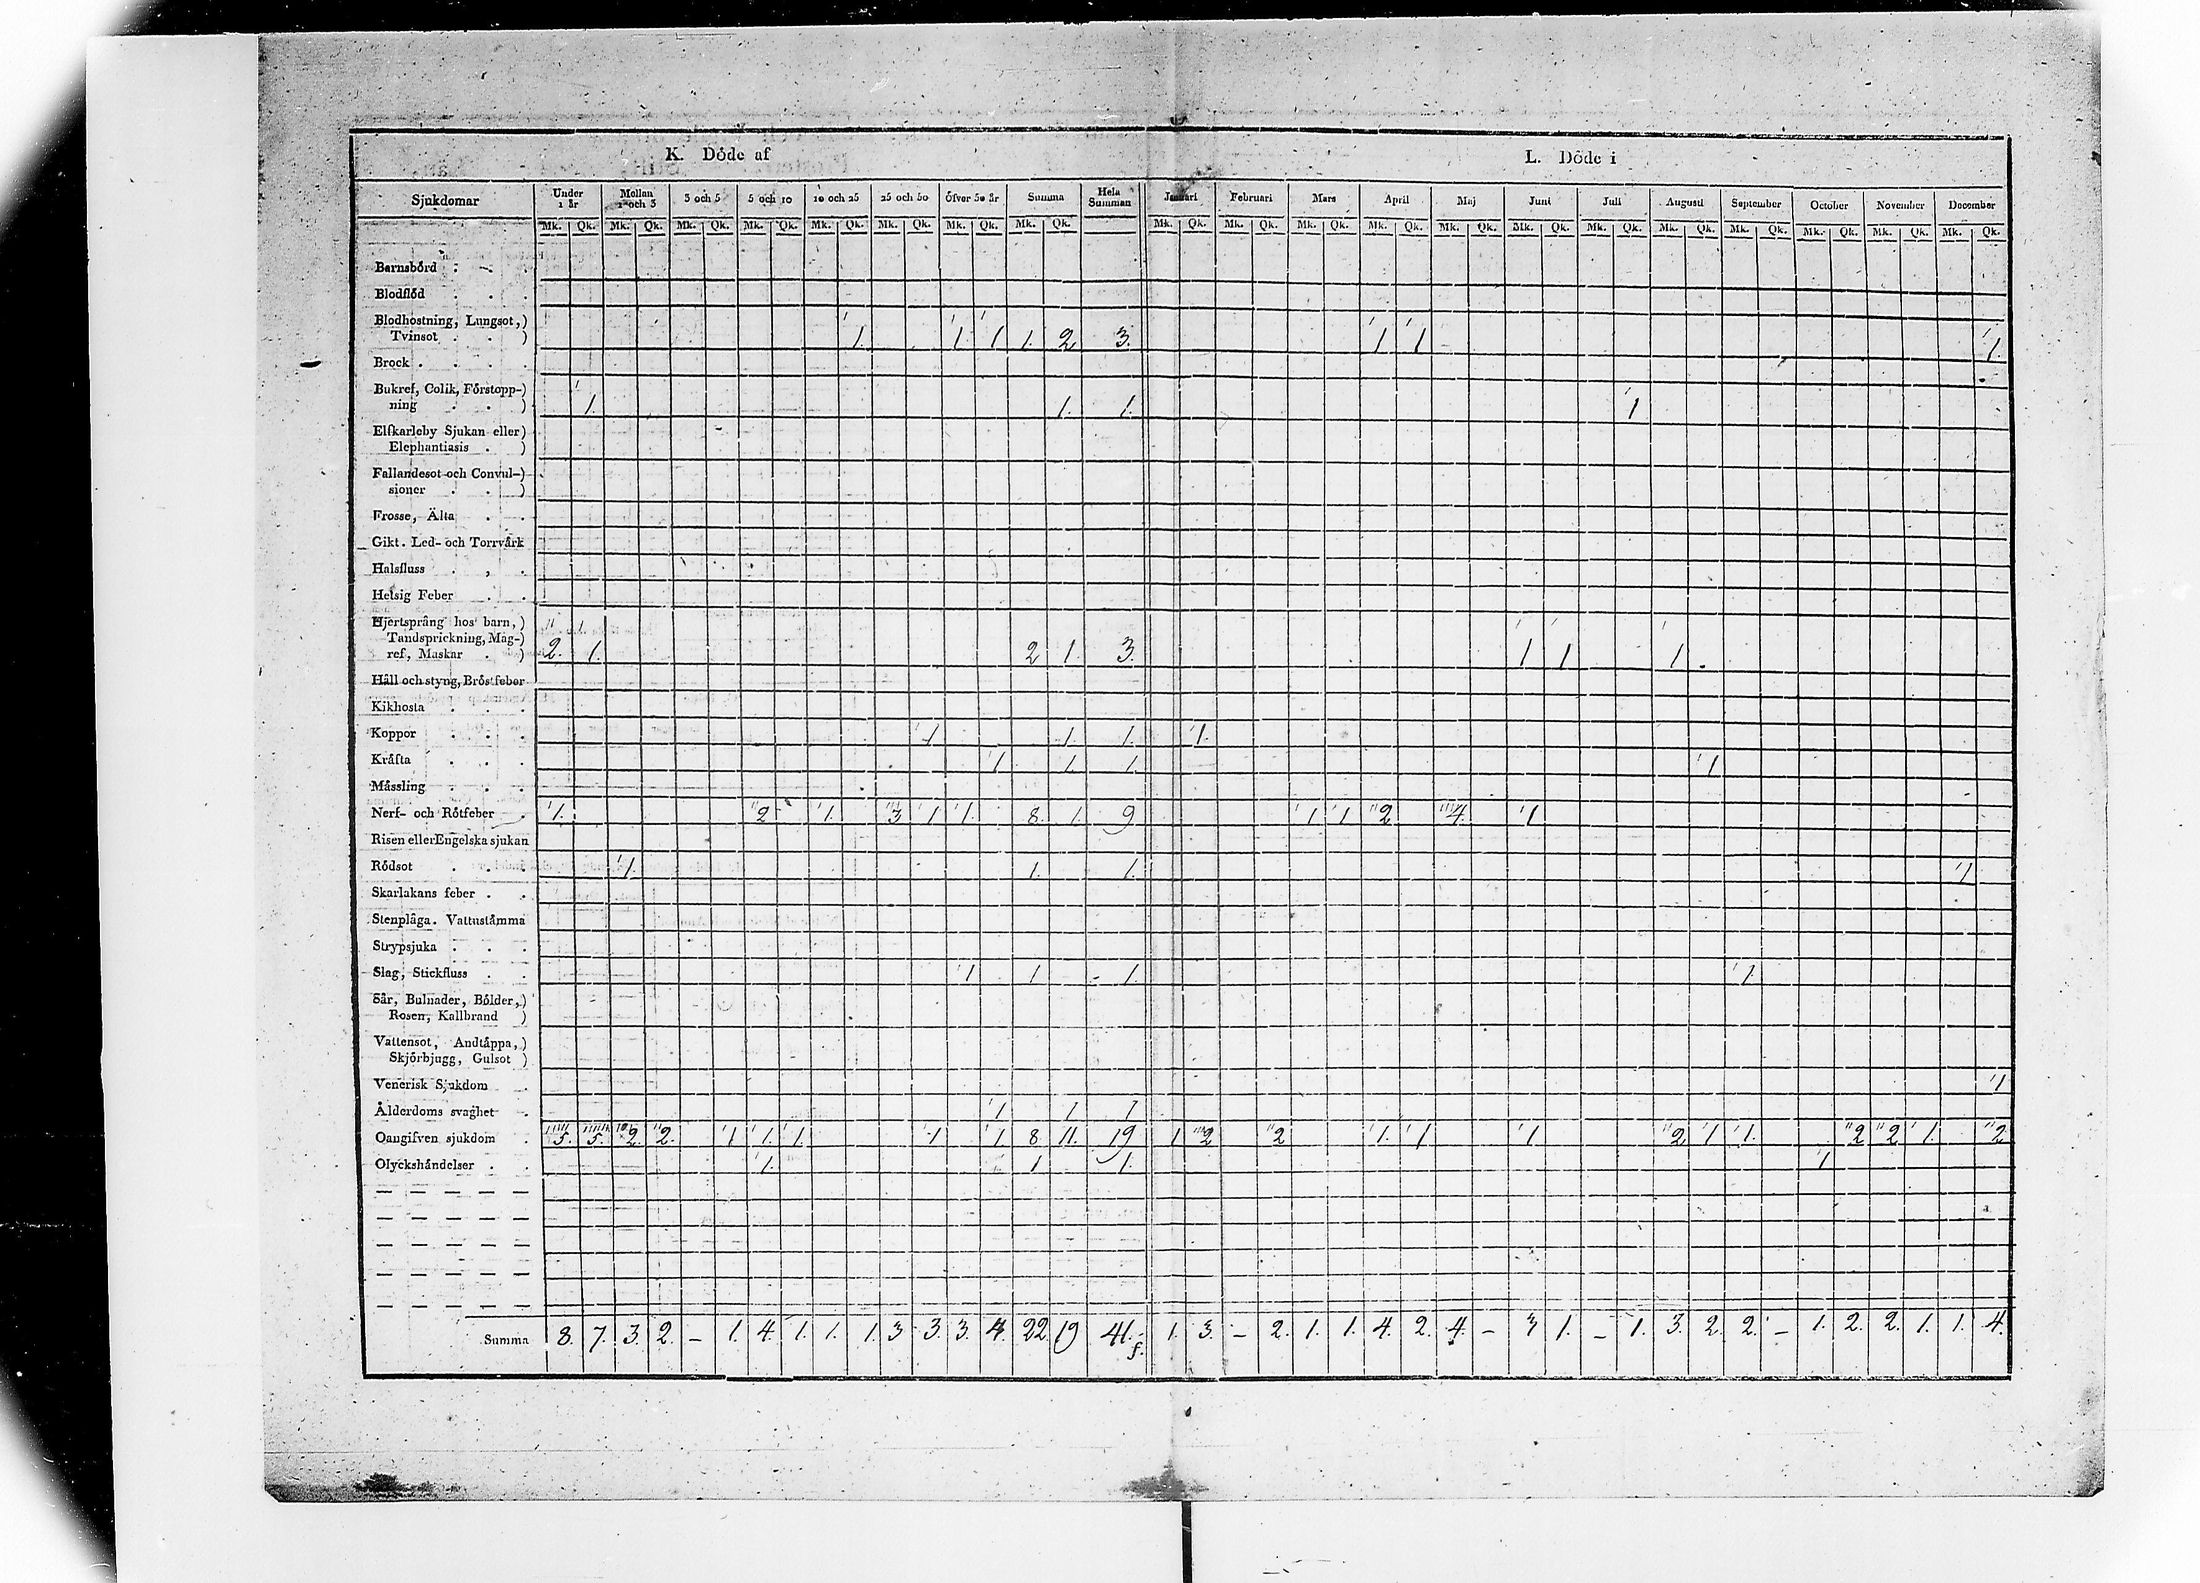 K. Döde af L. Döde i
Sjukdomar Under 1 år Mellan 1 och 3 3 och 5 5 och 10 10 och 25 25 och 50 Öfver 50 år Summa Hela Summan Januari Februari Mars April Maj Juni Juli Augusti September October November December
Mk. Qk. Mk. Qk. Mk. Qk. Mk. Qk. Mk. Qk. Mk. Qk. Mk. Qk. Mk. Qk. Mk. Qk. Mk. Qk. Mk. Qk. Mk. Qk. Mk. Qk. Mk. Qk. Mk. Qk. Mk. Qk. Mk. Qk. Mk. Qk. Mk. Qk. Mk. Qk.
Barnsbörd
Blodflöd
Blodhostning, Lungsot,)
Tvinsot . . ) 1. 1. 1 1. 2 3. 1 1 1.
Brock
Bukref, Colik, Förstopp-)
ning . . ) 1. 1. 1. 1
Elfkarleby Sjukan eller)
Elephantiasis . )
Fallandesot och Convul-)
sioner . . )
Frosse, Älta
Gikt. Led- och Torrvärk
Halsfluss
Hetsig Feber
Hjertsprång hos barn, )
Tandsprickning, Mag-)
ref, Maskar . ) 2. 1. 2 1. 3. 1 1 1
Håll och styng, Bröstfeber
Kikhosta
Koppor 1 1. 1. 1.
Kräfta 1 1. 1. 1
Måssling
Nerf- och Rötfeber 1. 2 1. 3 1 1. 8. 1. 9 1 1 2 4 1
Risen eller Engelska sjukan
Rödsot 1. 1. 1. 1
Skarlakans feber
Stenplåga. Vattustämma
Strypsjuka
Slag, Stickfluss 1 1 1. 1.
Sår, Bulnader, Bölder,)
Rosen, Kallbrand )
Vattensot, Andtäppa,)
Skjörbjugg, Gulsot )
Venerisk Sjukdom
Ålderdoms svaghet 1 1 1 1
Oangifven sjukdom 5. 5. 2. 2. 1 1. 1 1 1 8 11. 19 1 2 2 1. 1 1 2 1 1. 2 2 1. 2
Olyckshändelser 1. 1 1. 1
Summa 8. 7. 3. 2. – 1. 4. 1. 1. 1. 3 3. 3. 4. 22. 19 41. 1. 3. – 2. 1. 1. 4. 2. 4. – 3 1. – 1. 3. 2. 2. – 1. 2. 2. 1. 1. 4.